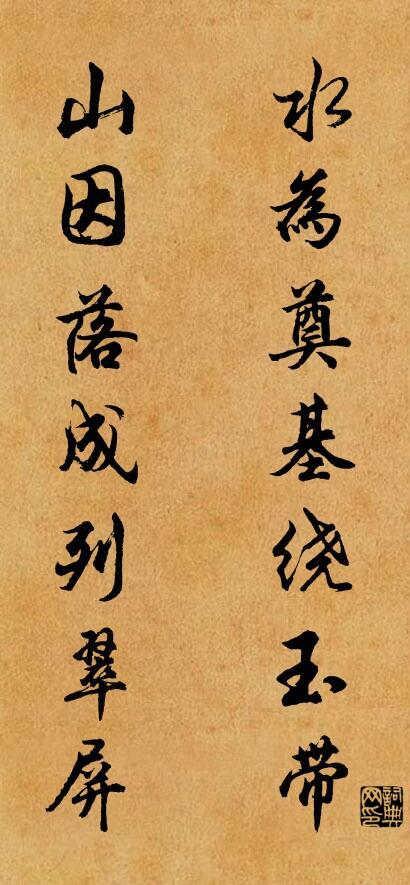 水為奠基绕玉带
山因落成列翠屏
詞典网印